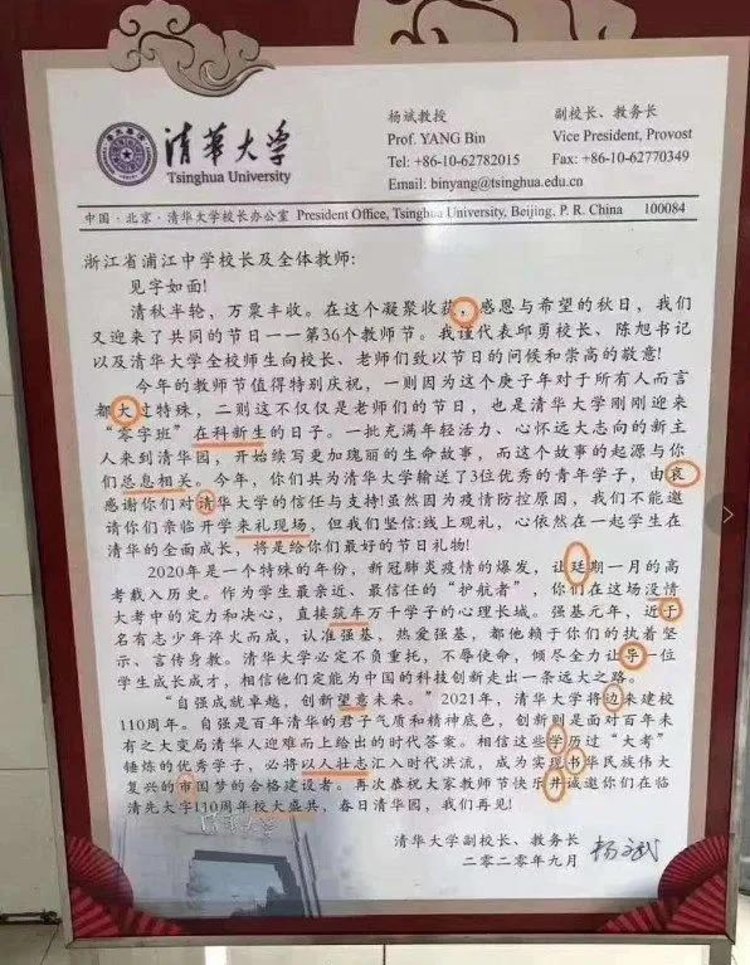 清华大学
Tsinghua University
杨斌教授
副校长、教务长
Prof. YANG Bin
Vice President, Provost
Tel: +86-10-62782015
Fax: +86-10-62770349
Email: binyang@tsinghua.edu.cn
中国·北京·清华大学校长办公室 President Office, Tsinghua University, Beijing, P. R. China 100084
浙江省浦江中学校长及全体教师:
见字如面!
清秋半轮，万粟丰收。在这个凝聚收获，感恩与希望的秋日，我们
又迎来了共同的节日一一第36个教师节。我谨代表邱勇校长、陈旭书记
以及清华大学全校师生向校长、老师们致以节日的问候和崇高的敬意!
今年的教师节值得特别庆祝，一则因为这个庚子年对于所有人而言
都大过特殊，二则这不仅仅是老师们的节日，也是清华大学刚刚迎来
“零字班”在科新生的日子。一批充满年轻活力、心怀远大志向的新主
人来到清华园，开始续写更加瑰丽的生命故事，而这个故事的起源与你
们总息相关。今年，你们共为清华大学输送了3位优秀的青年学子，由哀
感谢你们对清华大学的信任与支持!虽然因为疫情防控原因，我们不能邀
请你们亲临开学来礼现场，但我们坚信:线上观礼，心依然在一起学生在
清华的全面成长，将是给你们最好的节日礼物!
2020年是一个特殊的年份，新冠肺炎疫情的爆发，让廷期一月的高
考载入历史。作为学生最亲近、最信任的“护航者”，你们在这场没情
大考中的定力和决心，直接筑车万千学子的心理长城。强基元年，近于
名有志少年淬火而成，认准强基，热爱强基，都他赖于你们的执着坚
示、言传身教。清华大学必定不负重托，不辱使命，倾尽全力让导一位
学生成长成才，相信他们定能为中国的科技创新走出一条远大之路。
“自强成就卓越，创新望意未来。”2021年，清华大学将边来建校
110周年。自强是百年清华的君子气质和精神底色，创新则是面对百年未
有之大变局清华人迎难而上给出的时代答案。相信这些学历过“大考”
锤炼的优秀学子，必将以人壮志汇入时代洪流，成为实现书华民族伟大
复兴的市国梦的合格建设者。再次恭祝大家教师节快乐井诚邀你们在临
清先大字110周年校大盛共，春日清华园，我们再见!
清华大学副校长、教务长
二零二零年九月
杨斌